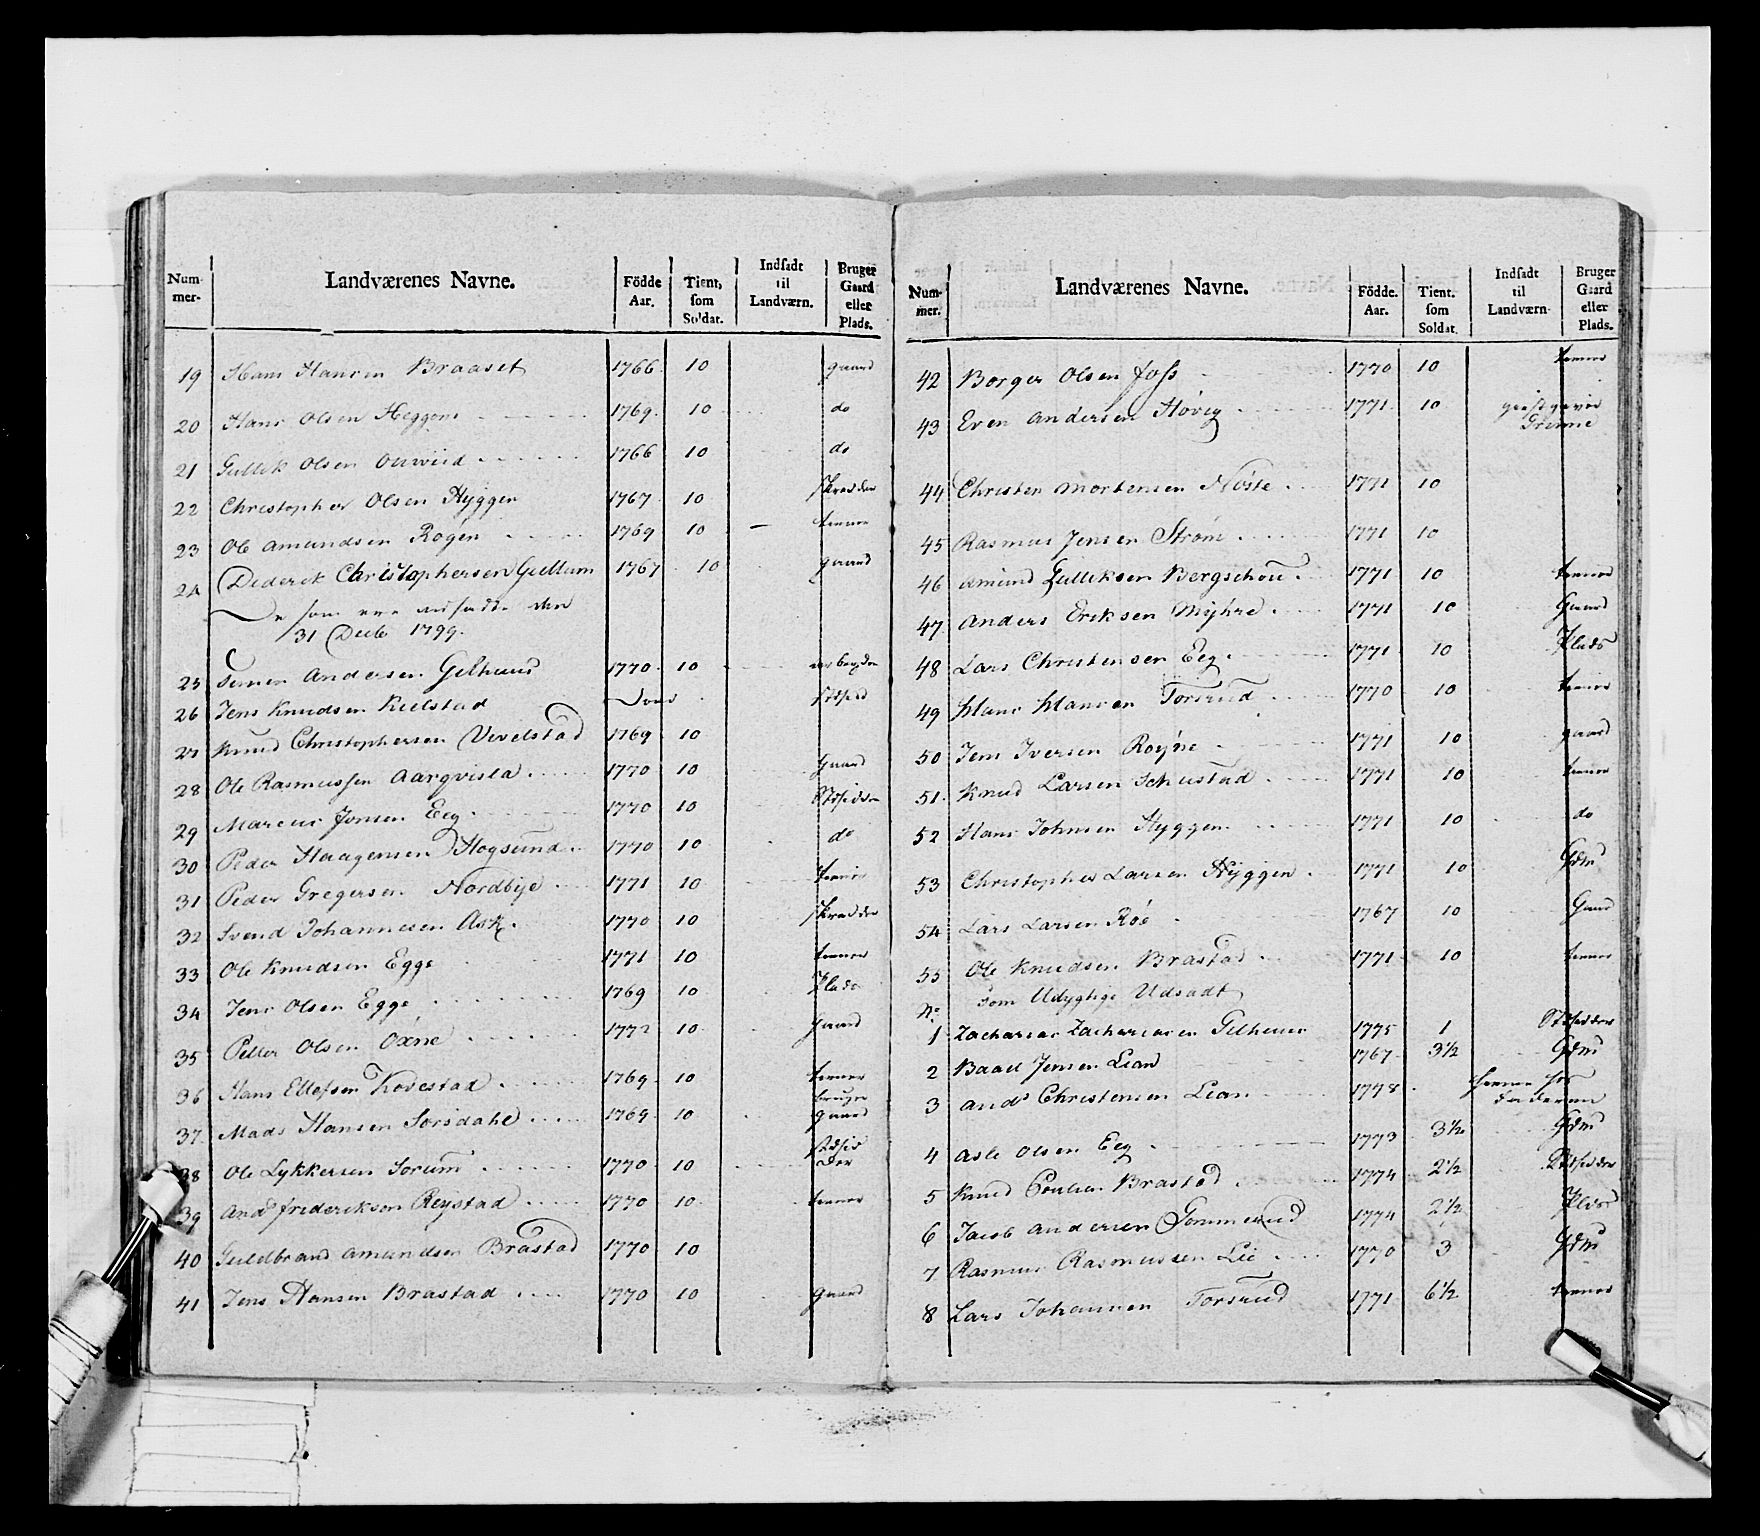 Num-mer. Landværenes Navne. Födde Aar. Tient, som Soldat. Indsadt til Landværn. Bruger Gaard eller Plads.
19 Hans Hansen Braaset 1766 10 gaard
20 Hans Olsen Heggom 1769 10 do
21 Gullik Olsen 1766 10 do
22 Christopher Olsen Hyggen 1767 10 skredder
23 Ole Amundsen Rogen 1769 10 tenner
24 Dederik Christophersen Gullum 1767 10 gaard
som ere udsadte den
31 Decb 1799.
25 Simen Andersen Gilhuus 1770 10
26 Jens Knudsen Kielstad
27 Knud Christophersen Vivelstad 1769 10
28 Ole Rasmussen Aarqvisla 1770 10 gaard
29 Marcus Jonsen Eeg 1770 10 Stdsidder
30 Peder Haagensen Hogsund 1770 10 do
31 Peder Gregersen Nordbye 1771 10 tienner
32 Svend Johannesen Ask 1770 10 skredder
33 Ole Knudsen Egge 1771 10 tienner
34 Jens Olsen Egge 1769 10 Plads
35 Peller Olsen Oxne 1772 10 gaard
36 Hans Ellefsen Kovestad 1769 10 tienner
37 Mads Hansen Sorsdahl 1769 10 bruger gaard
38 Ole Lykkersen Sorum 1770 10 stdsidder
39 And frideriksen Reystad 1770 10 tienner
40 Guldbrand Amundsen Brastad 1770 10
41 Jens Hansen Brastad 1770 10 gaard
Num-mer. Landværenes Navne. Födde. Aar. Tient. som Soldat. Indsadt til Landværn. Bruger Gaard eller Plads.
42 Borger Olsen foss 1770 10 tienner
43 Even Andersen Høvig 1771 10 giestgiver
44 Christen Mortensen Nöste 1771 10
45 Rasmus Jensen Strøm 1771 10
46 Amund Gulliksen Bergschou 1771 10 tienner
47 Anders Eriksen Myhre 1771 10 Gaard
48 Lars Christensen Eeg 1771 10 Plads
49 Hans Hansen Torsrud 1770 10 tienner
50 Jens Iversen Royne 1771 10 gaard
51 Knud Larsen Schustad 1771 10 tienner
52 Hans Johnsen Hyggen 1771 10 do
53 Christopher Larsen Hyggen 1771 10 Gdm
54 Lars Larsen Röe 1767 10 Gaard
55 Ole Knudsen Brastad 1771 10 tienner
No som Udygtige Udsadt
1 Zacharias Zachariasen Gilhuus 1775 1 Stdsidder
2 Baard Jensen Lian 1767 3½ Gdm
3 Ands Christensen Lian 1778 tienner hos faderen
4 Asle Olsen Eeg 1773 3½ Gdm
5 Knud Poulsen Brastad 1774 2½ Stdsidder
6 Jacob Andersen Gommerud 1774 2½ Plds
7 Rasmus Rasmussen Lie 1770 3 Gdm
8 Lars Johannsen Torsrud 1771 6½ tienner